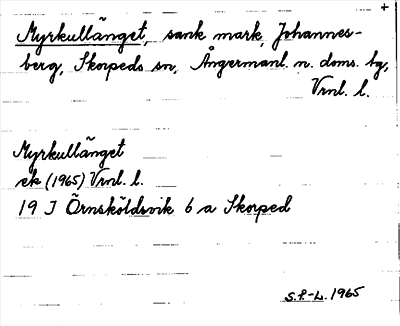 Myrkullänget, sank mark, Johannes-
berg, Skorpeds sn, Ångermanl. n. doms. bg,
Vrnl. l.
Myrkullänget
ek (1965) Vrnl. l.
19 J Örnsköldsvik 6 a Skorped
S.F.-L. 1965